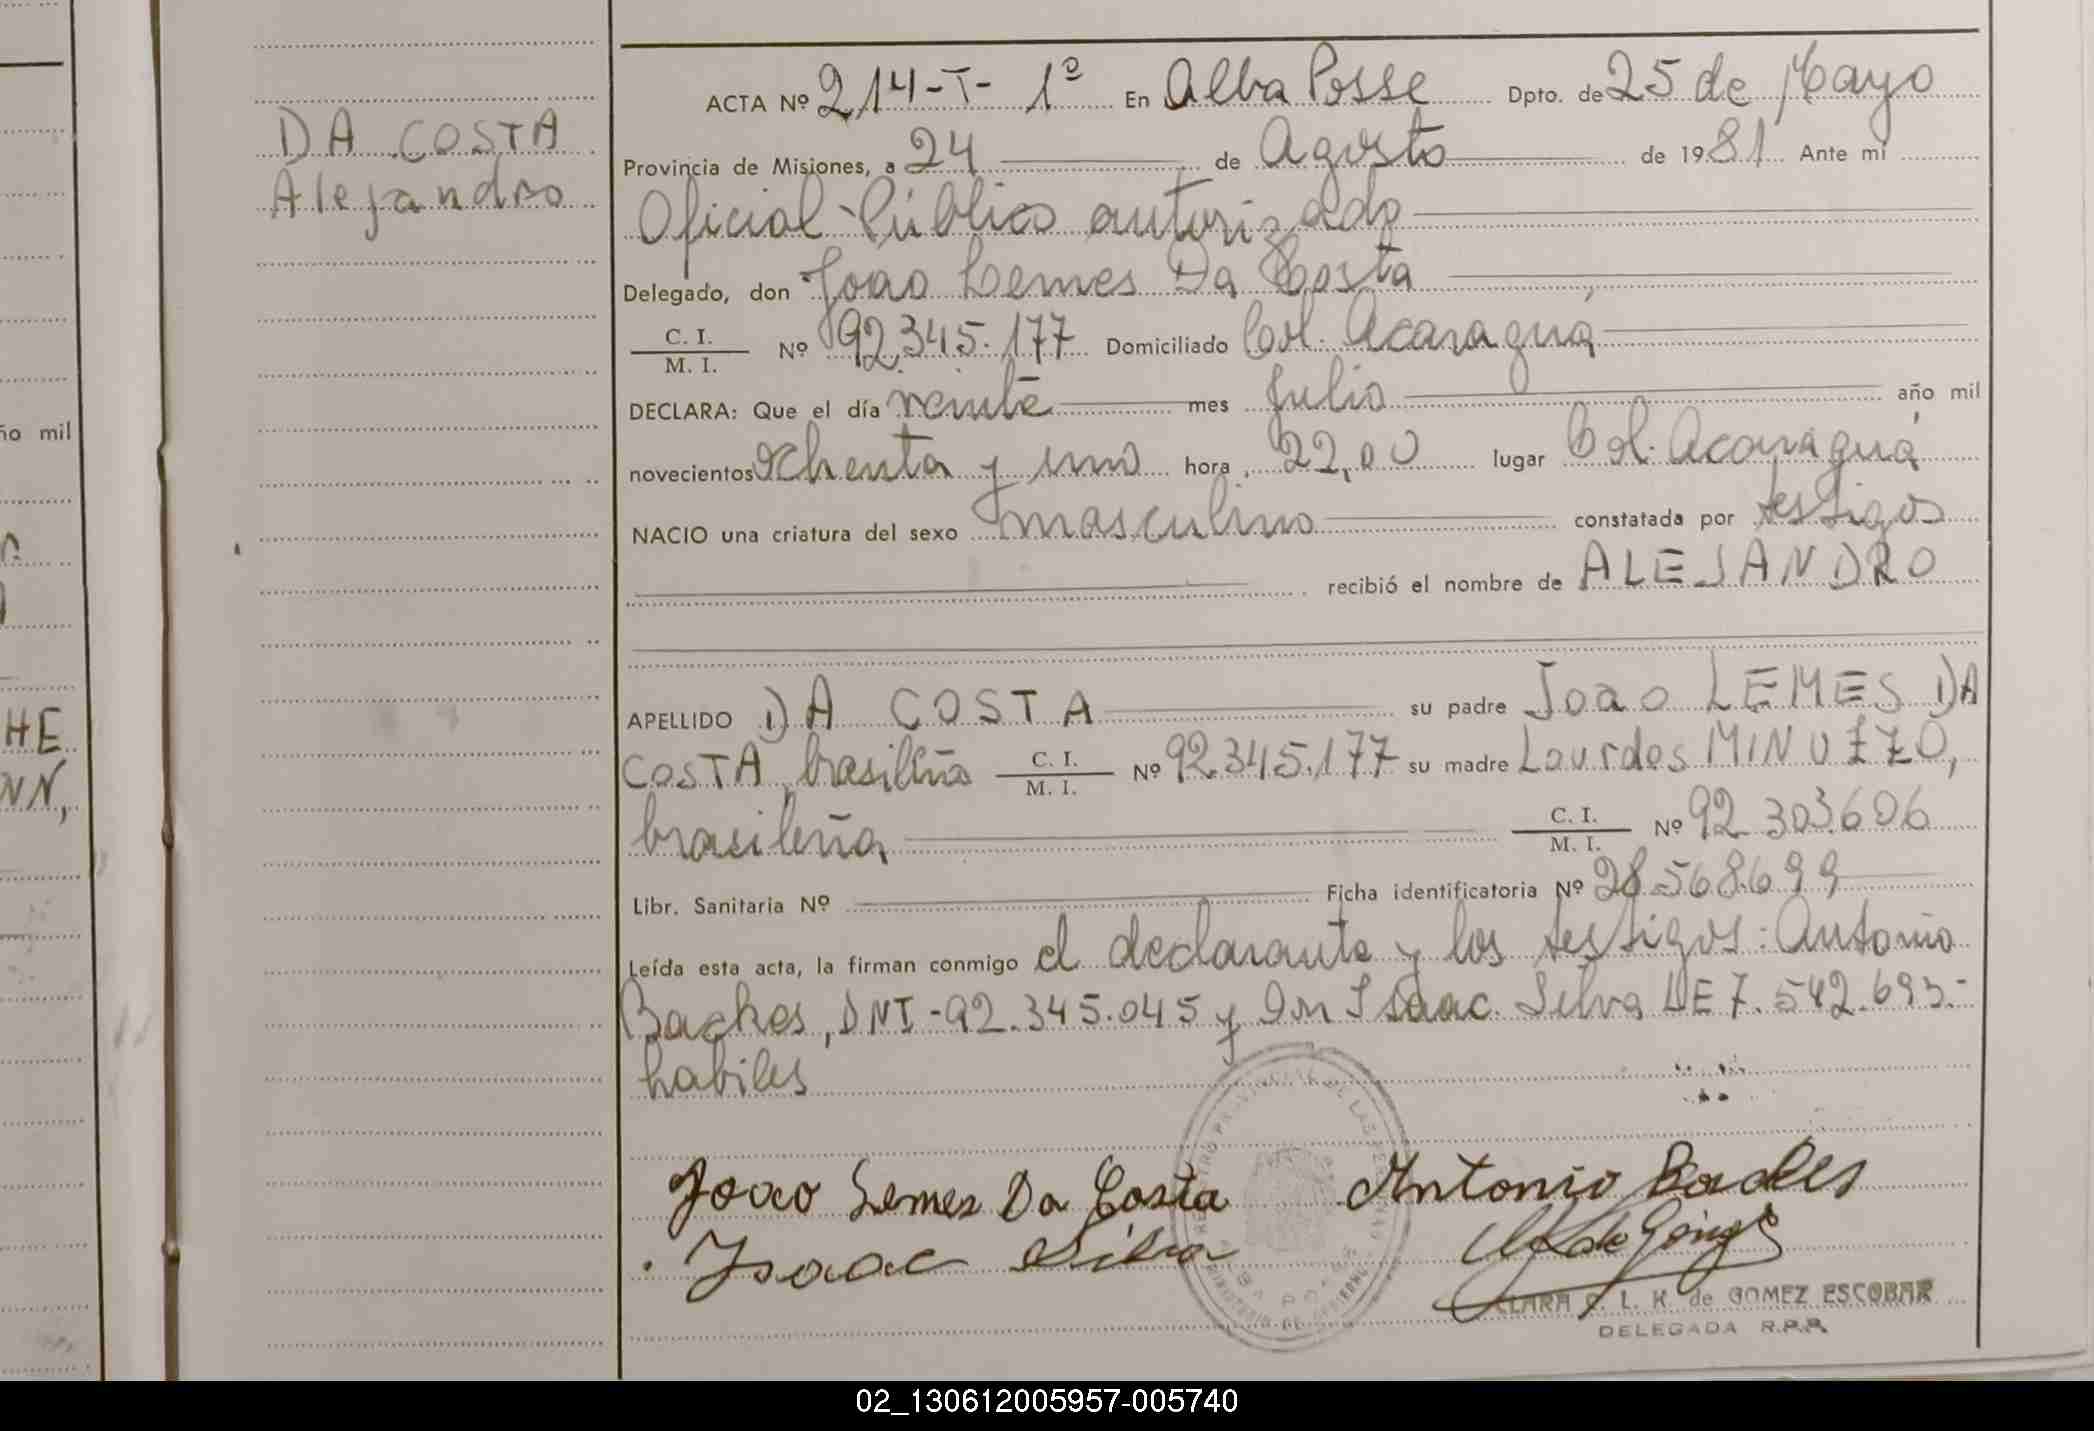 DA COSTA
Alejandro
ACTA Nº 214-T- 1º En Alba Posse Dpto. de 25 de Mayo
Provincia de Misiones, a 24 de Agosto de 1981 Ante mi
Oficial Público autorizado
Delegado, don Joao Lemes Da Costa
C. I.
M. I.
Nº 92.345.177 Domiciliado Col. Acaraguá
DECLARA: Que el día veinte mes Julio año mil
novecientos ochenta y uno hora 22,00 lugar Col. Acaraguá
NACIO una criatura del sexo masculino constatada por testigos
recibió el nombre de ALEJANDRO
APELLIDO DA COSTA su padre Joao LEMES DA
COSTA, brasileño C. I.
M. I.
Nº 92.345.177 su madre Lourdes MINUZZO,
brasileña C. I.
M. I.
Nº 92.303.606
Libr. Sanitaria Nº Ficha identificatoria Nº 28.568.699
Leída esta acta, la firman conmigo el declarante y los testigos: Antonio
Backes, DNI-92.345.045 y Isaac Silva DE 7.542.693.-
habiles
Joao Lemes Da Costa
Antonio Backes
Isaac Silva
CLARA L. K. de GOMEZ ESCOBAR
DELEGADA R.P.P.
ño mil
HE
NN,
02_130612005957-005740